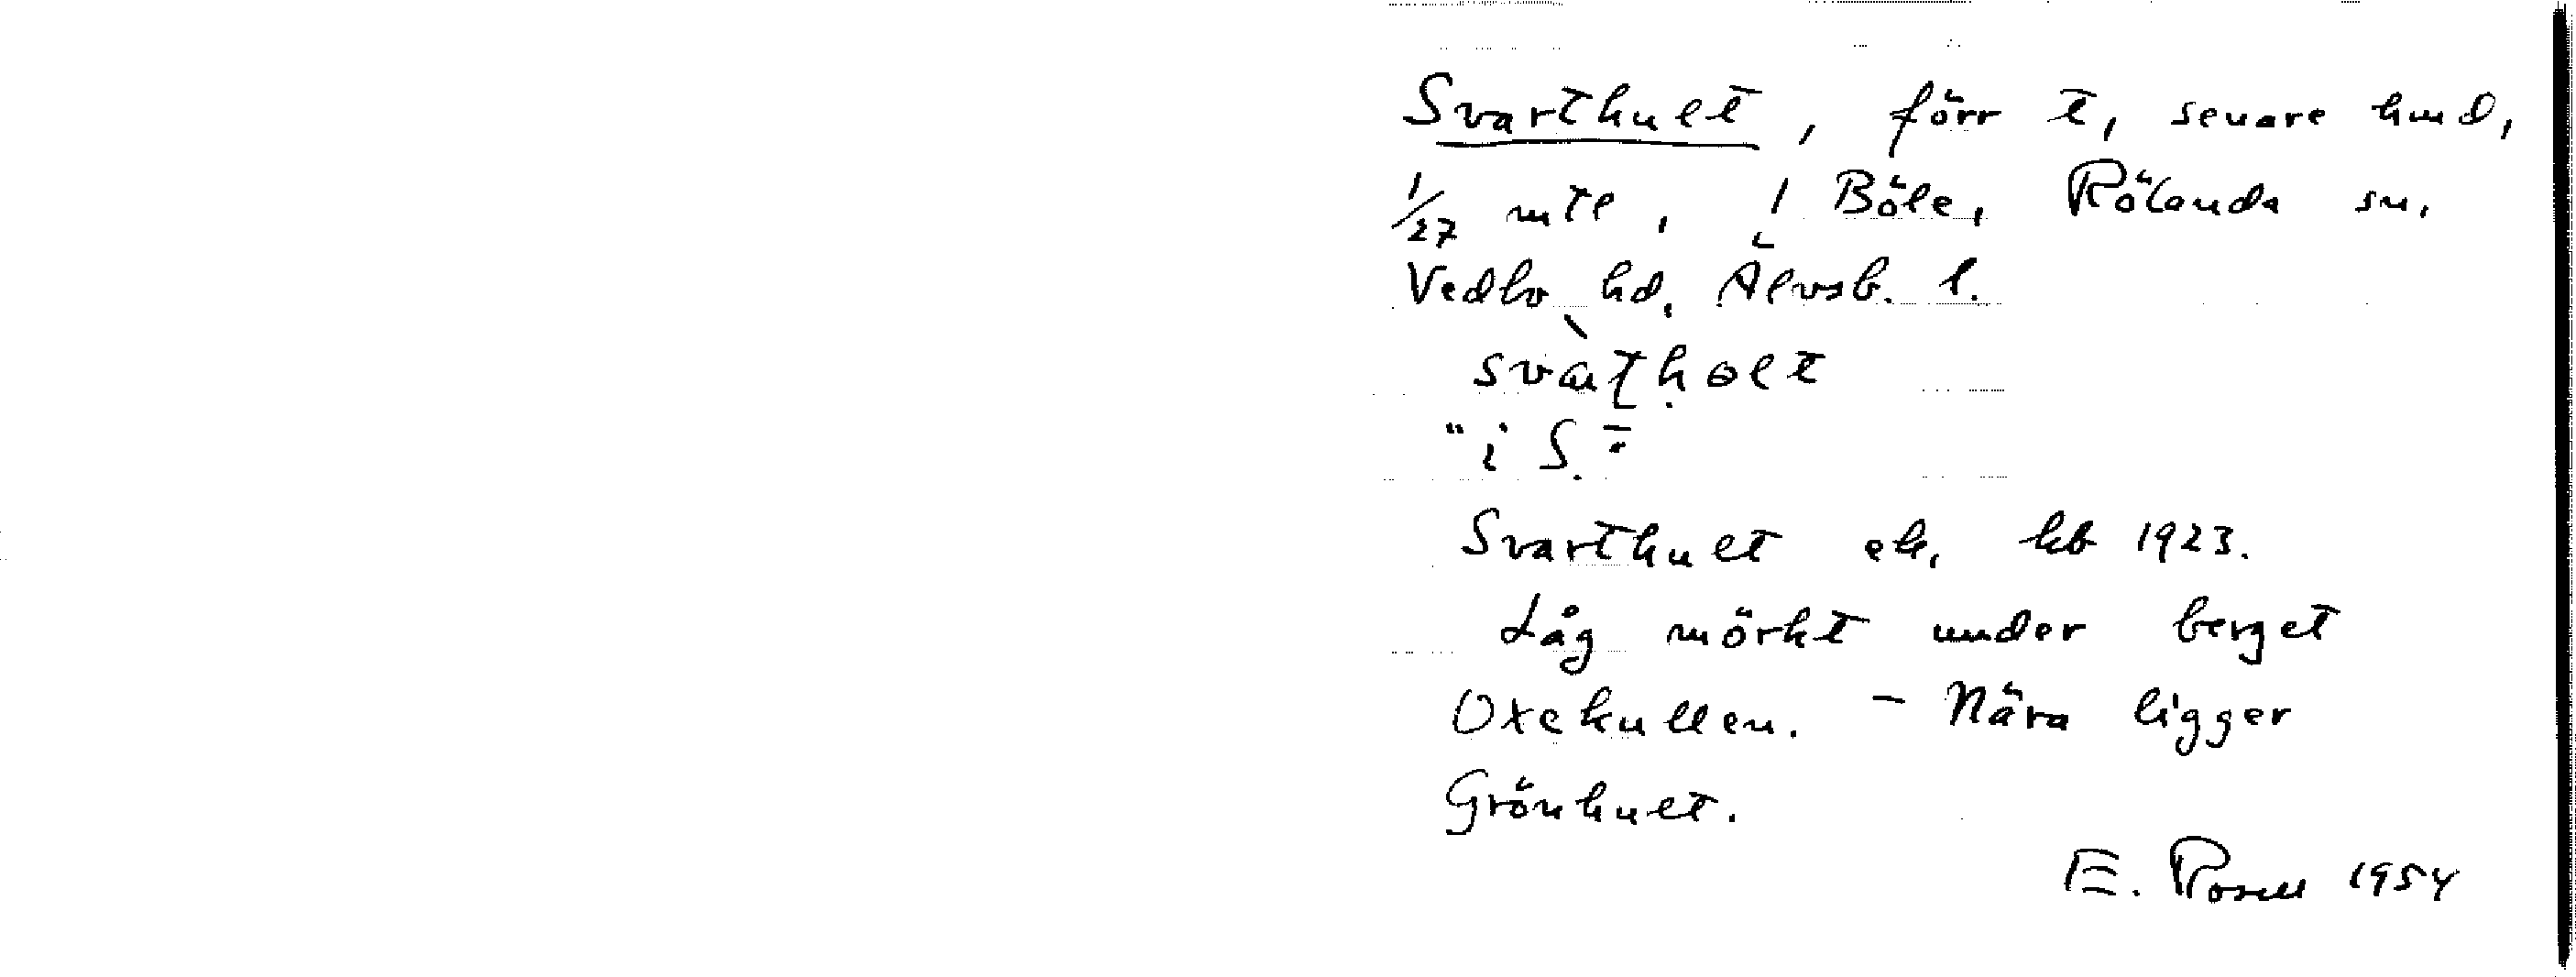 Svarthult, förr t, senare hmd,
1/27 mtl, i Böle, Rölanda sn,
Vedbo hd, Älvsb. l.
"i S."
Svarthult ek, kb 1923.
Låg mörkt under berget
Oxekullen. - Nära ligger
Grönhult.
E. Rosell 1954